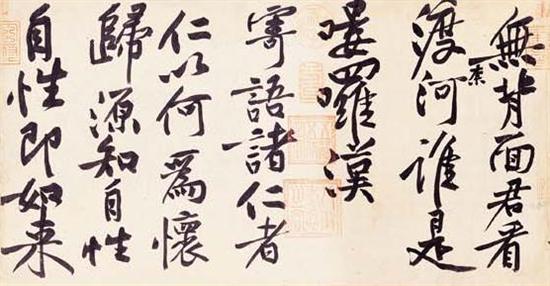 無背面君看
渡柰河誰是
嘍囉漢
寄語諸仁者
仁以何爲懷
歸源知自性
自性即如来